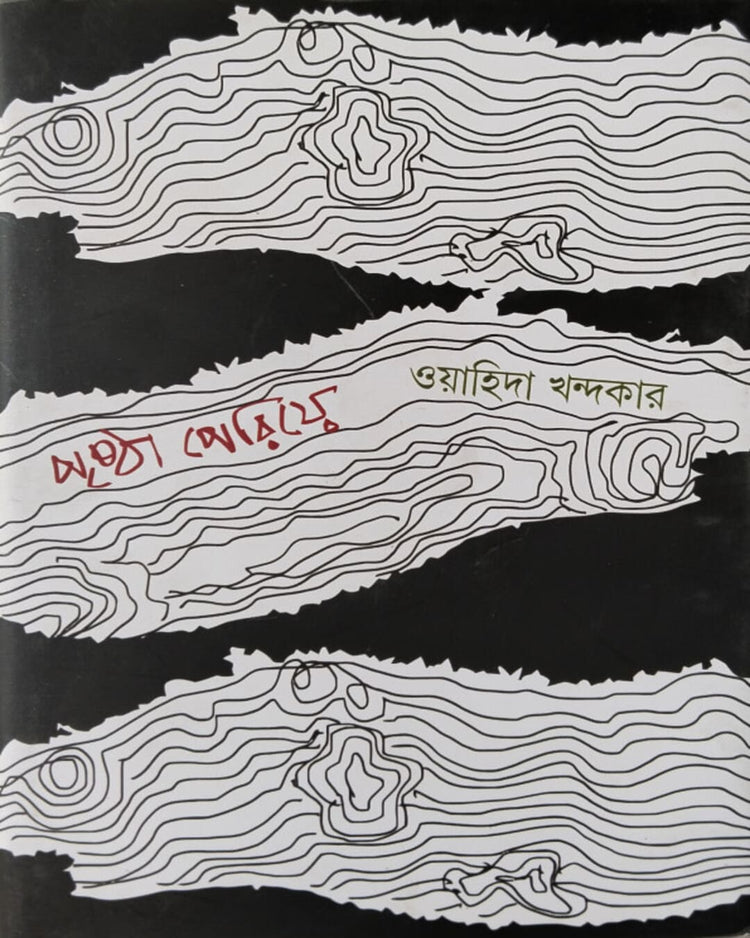 পৃষ্ঠা পেরিয়ে
ওয়াহিদা খন্দকার